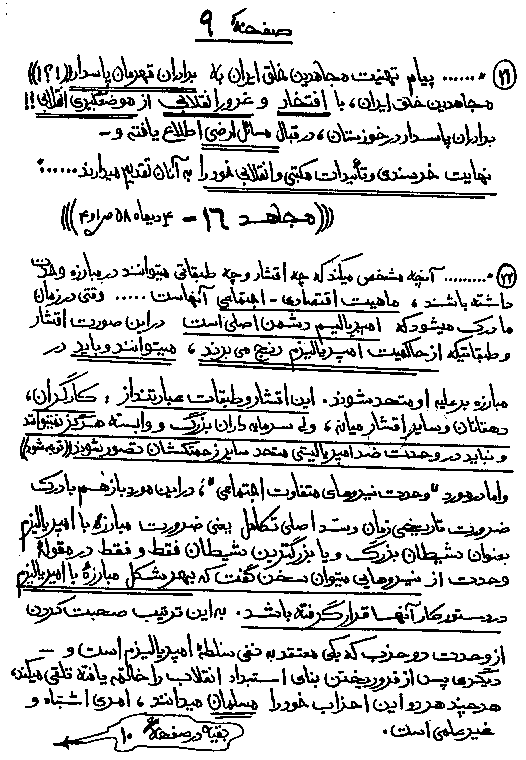 صفحهٔ ۹
(۲۱) ۰...... پیام تهنیت مجاهدین خلق ایران به برادران قهرمان پاسدار((؟!))
مجاهدین خلق ایران، با افتخار و غرور انقلابی از موضعگیری انقلابی!!
برادران پاسدار در خوزستان، در قبال مسائل ارضی اطلاع یافته و –
نهایت خرسندی و تأییدات مکتبی و انقلابی خود را به آنان تقدیم میدارند.....:
(((مجاهد ۱۶ – ۴ دیماه ۵۸ ص ۱ و ۴)))
(۲۲) ۰......... آنچه مشخص میکند که چه اقشار و چه طبقاتی میتوانند در مبارزه وحدت
داشته باشند، ماهیت اقتصادی – اجتماعی آنهاست ..... وقتی در زمان
ما درک میشود که امپریالیسم دشمن اصلی است در این صورت اقشار
و طبقاتیکه از حاکمیت امپریالیزم رنج می برند، میتوانند و باید در
مبارزه بر علیه او متحد شوند. این اقشار و طبقات عبارتند از: کارگران،
دهقانان و سایر اقشار میانه، ولی سرمایه داران بزرگ و وابسته هرگز نمیتوانند
و نباید در وحدت ضد امپریالیستی متحد سایر زحمتکشان تصور بشوند(توجه شود)
و اما در مورد "وحدت نیروهای متفاوت اجتماعی"؛ در این مورد باز هم با درک
ضرورت تاریخی زمان و سد اصلی تکامل یعنی ضرورت مبارزه با امپریالیزم
بعنوان شیطان بزرگ و یا بزرگترین شیطان فقط و فقط در مقولهٔ
وحدت از نیروهایی میتوان سخن گفت که بهر شکل مبارزهٔ با امپریالیزم
در دستور کار آنها قرار گرفته باشد. به این ترتیب صحبت کردن
از وحدت دو حزب که یکی معتقد به نفی سلطهٔ امپریالیزم است و –
دیگری پس از فرو ریختن بنای استبداد انقلاب را خاتمه یافته تلقی میکند،
هر چند هر دو این احزاب خود را مسلمان میدانند، امری اشتباه و
غیر علمی است.
بقیه در صفحهٔ ۱۰